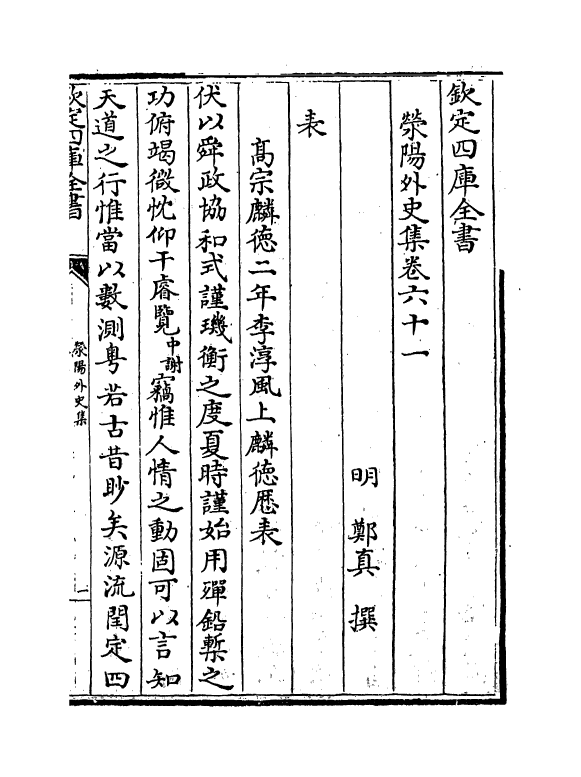 欽定四庫全書
滎陽外史集卷六十一
明 鄭真 撰
表
髙宗麟徳二年李淳風上麟徳厯表
伏以舜政協和式謹璣衡之度夏時謹始用殫鉛槧之
功俯竭微忱仰干睿覽中謝竊惟人情之動固可以言知
天道之行惟當以數測粤若古昔眇矣源流閏定四
欽定四庫全書
滎陽外史集
一